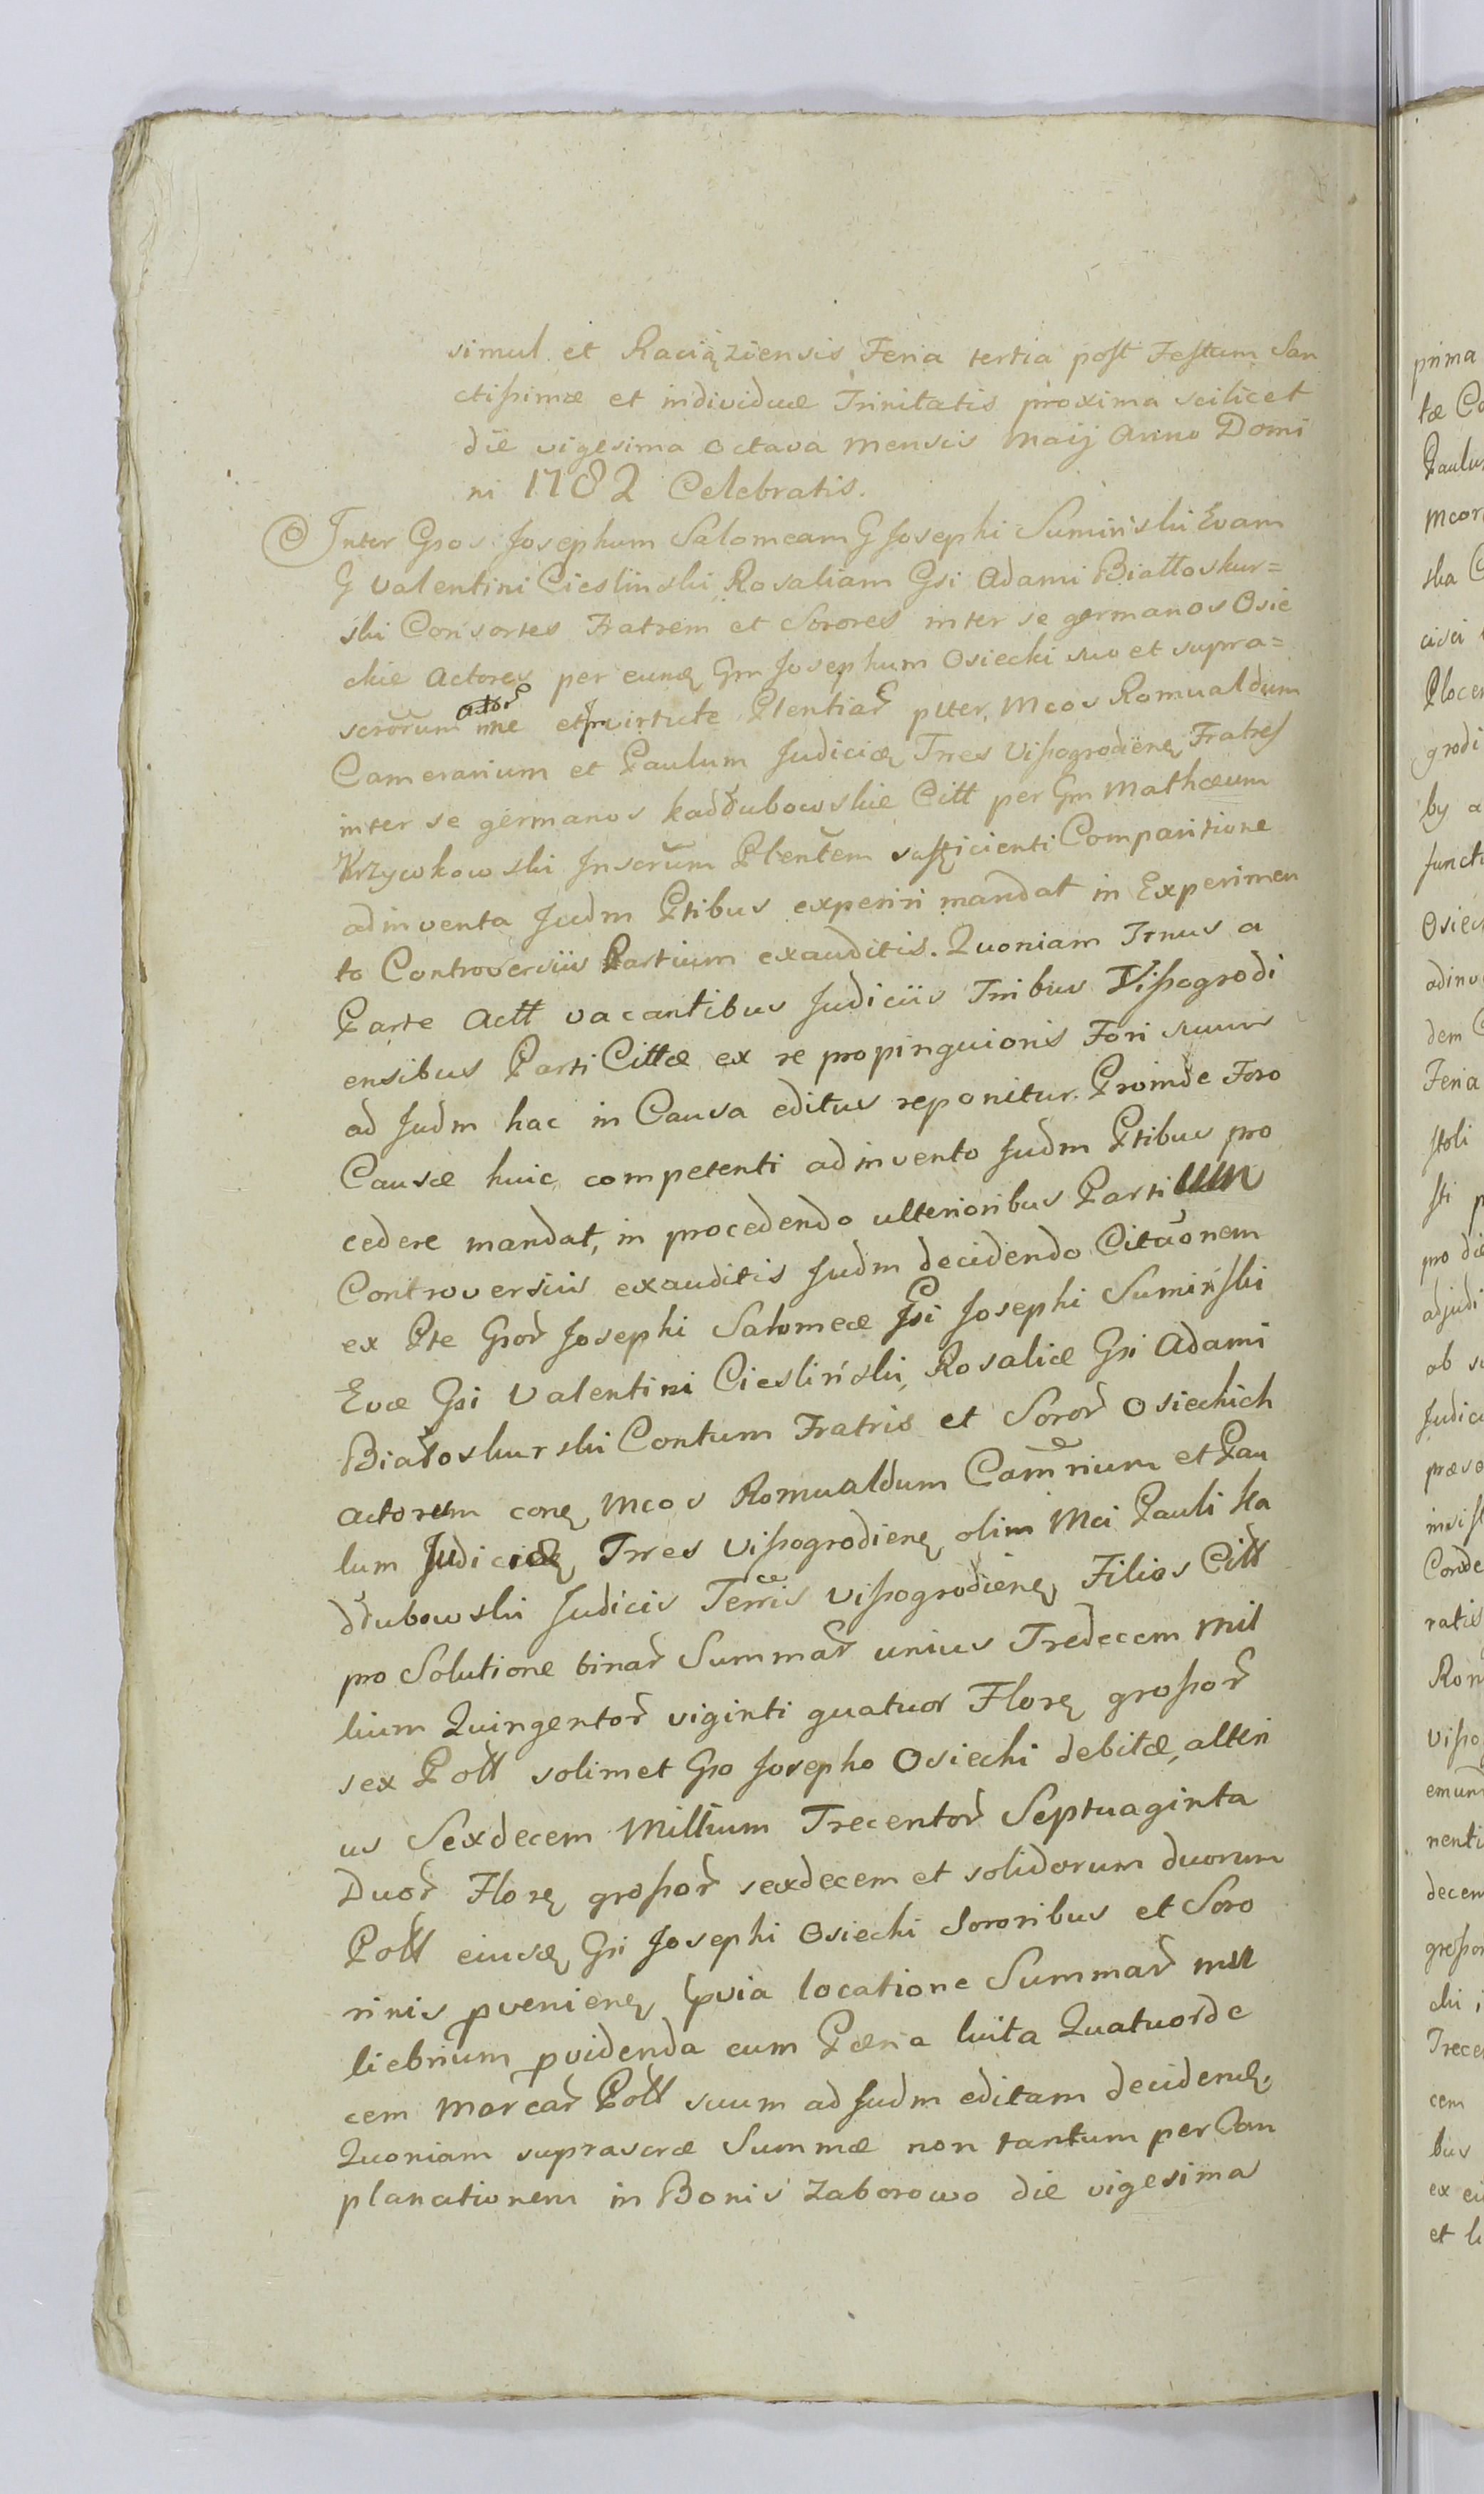 simul et Raciążiensis Feria tertia post Festum San
ctissimæ et individuæ Trinitatis proxima scilicet
die vigesima octava mensis Maij Anno Domi
ni 1782 Celebratis.
Inter Gsos Josephum Salomeam G Josephi Suminski Evam
G Valentini Cieslinski, Rosaliam Gsi Adami Białłoskur=
ski Consortes Fratrem et Sorores inter se germanos Osie
ckie Actores per eund Gm Josephum Osiecki suo et supra=
scrorum Actor ñne et virtute Plentiar pter, Mcos Romualdum
Camerarium et Paulum Judicidæ Trres Vissogrodien Fratres
inter se germanos Kaddubowskie Citt per Gm Mathæum
Krzywkowski Inscrum Plentem sufficienti Comparitione
adinventa Judm Ptibus experiri mandat in Experimen
to Controversiis Partium exauditis. Quoniam Trnus a
Parte Actt vacantibus Judiciis Tribus Vissogrodi
ensibus Parti Cittæ ex re propinquioris Fori suum
ad Judm hac in Causa editus reponitur. Proinde Foro
Causæ huic competenti adinvento Judm Ptibus pro
cedere mandat, in procedendo ulterioribus Partium
Controversiis exauditis Judm decidendo Citaonem
ex Pte Gsor Josephi Salomeæ Gsi Josephi Suminski
Evæ Gsi Valentini Cieslinski, Rosaliæ Gsi Adami
Białoskurski Contum Fratris et Soror Osieckich
Actorum con Mcos Romualdum Camrium et Pau
lum Judicidæ Trres Vissogrodien olim Mci Pauli Ka
ddubowski Judicis Terris Vissogrodien Filios Citt
pro Solutione binar Summar unius Tredecem Mil
lium Quingentor viginti quatuor Flor grossor
sex Poll solimet Gso Josepho Osiecki debitæ, alteri
us Sexdecem Millium Trecentor Septuaginta
Duor Flor grossor sexdecem et solidorum duorum
Poll eiusd Gsi Josephi Osiecki Sororibus et Soro
rinis pvenien pvia locatione Summar mu
liebrium pvidenda cum Pæna luita Quatuorde
cem Marcar Poll suum ad Judm editam deciden.
Quoniam suprascræ Summæ non tantum per Com
planationem in Bonis Zaborowo die vigesima